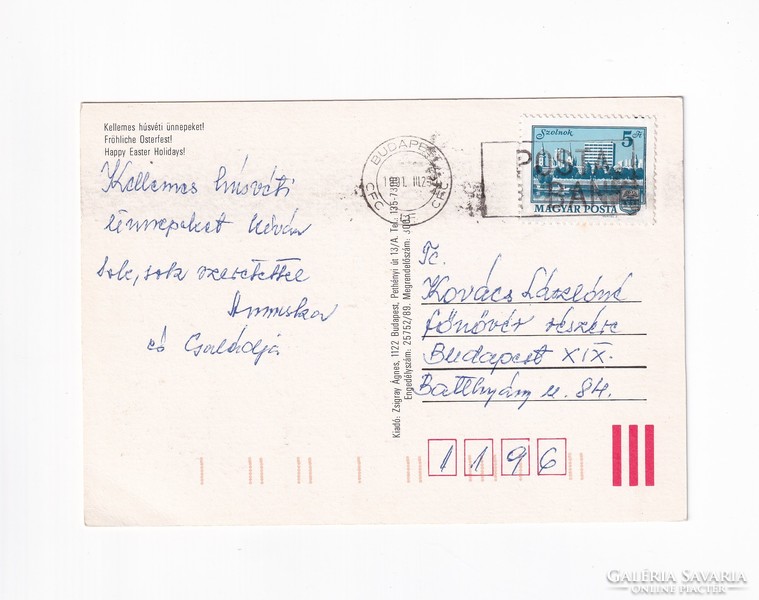 Kellemes húsvéti ünnepeket!
Fröhliche Osterfest!
Happy Easter Holidays!
Kellemes húsvéti
ünnepeket kíván
sok, sok szeretettel
Annuska
és Családja
Kiadó: Zsigray Ágnes, 1122 Budapest, Pethényi út 13/A. Tel.: 135-73
Engedélyszám: 25752/89. Megrendelőszám:
BUDAPEST
CFC CFC
POSTA
BANK
Szolnok 5 Ft
MAGYAR POSTA
Tc.
Kovács Lászlóné
főnővér részére
Budapest XIX.
Batthyány u. 84.
1196
GALÉRIA SAVARIA
ONLINE PIACTÉR